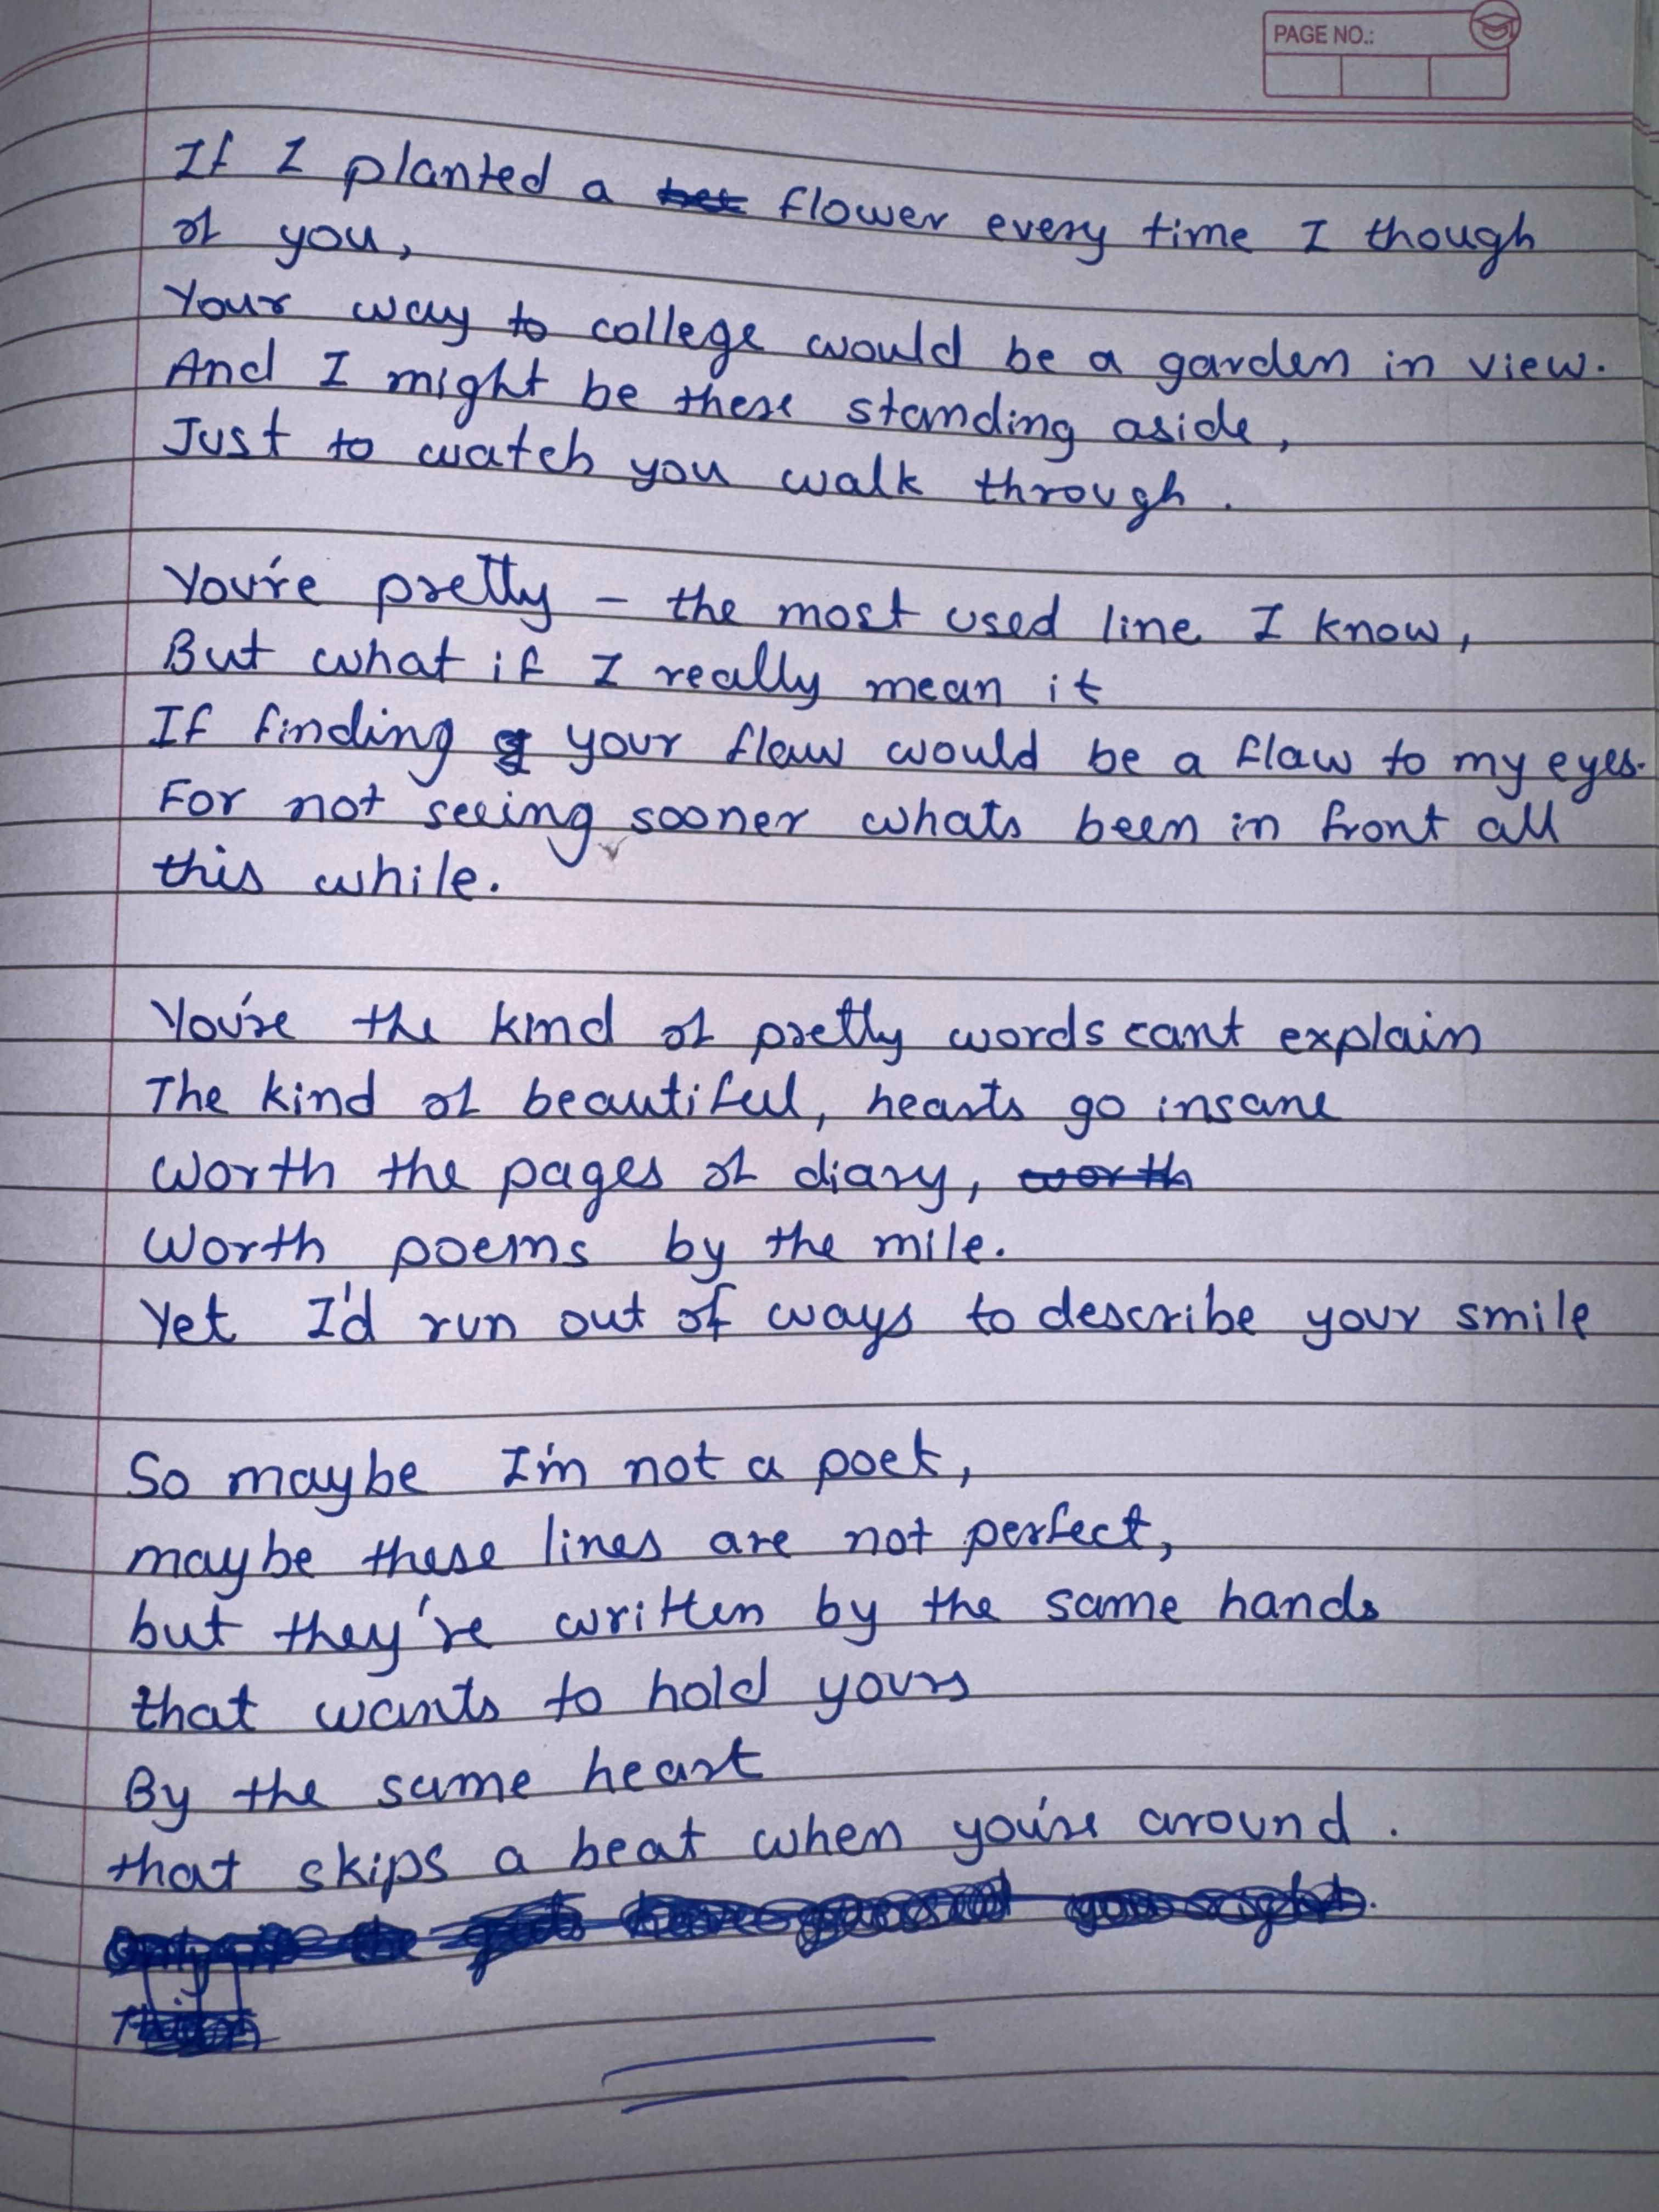 PAGE NO.:
If I planted a flower every time I though
of you,
Your way to college would be a garden in view.
And I might be there standing aside,
Just to watch you walk through.
You're pretty - the most used line I know,
But what if I really mean it
If finding your flaw would be a flaw to my eyes.
For not seeing sooner whats been in front all
this while.
You're the kind of pretty words cant explain
The kind of beautiful, hearts go insane
Worth the pages of diary, worth
Worth poems by the mile.
Yet I'd run out of ways to describe your smile
So maybe I'm not a poet,
maybe these lines are not perfect,
but they're written by the same hands
that wants to hold yours
By the same heart
that skips a beat when you're around.